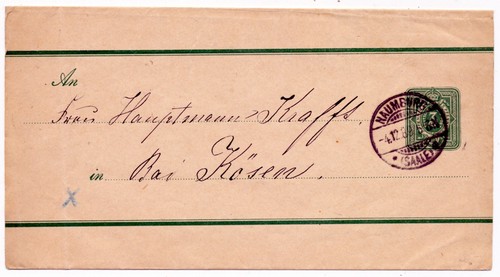 An
Frau Hauptmann Krafft.
in Bad Kösen.
NAUMBURG
(SAALE)
3
X